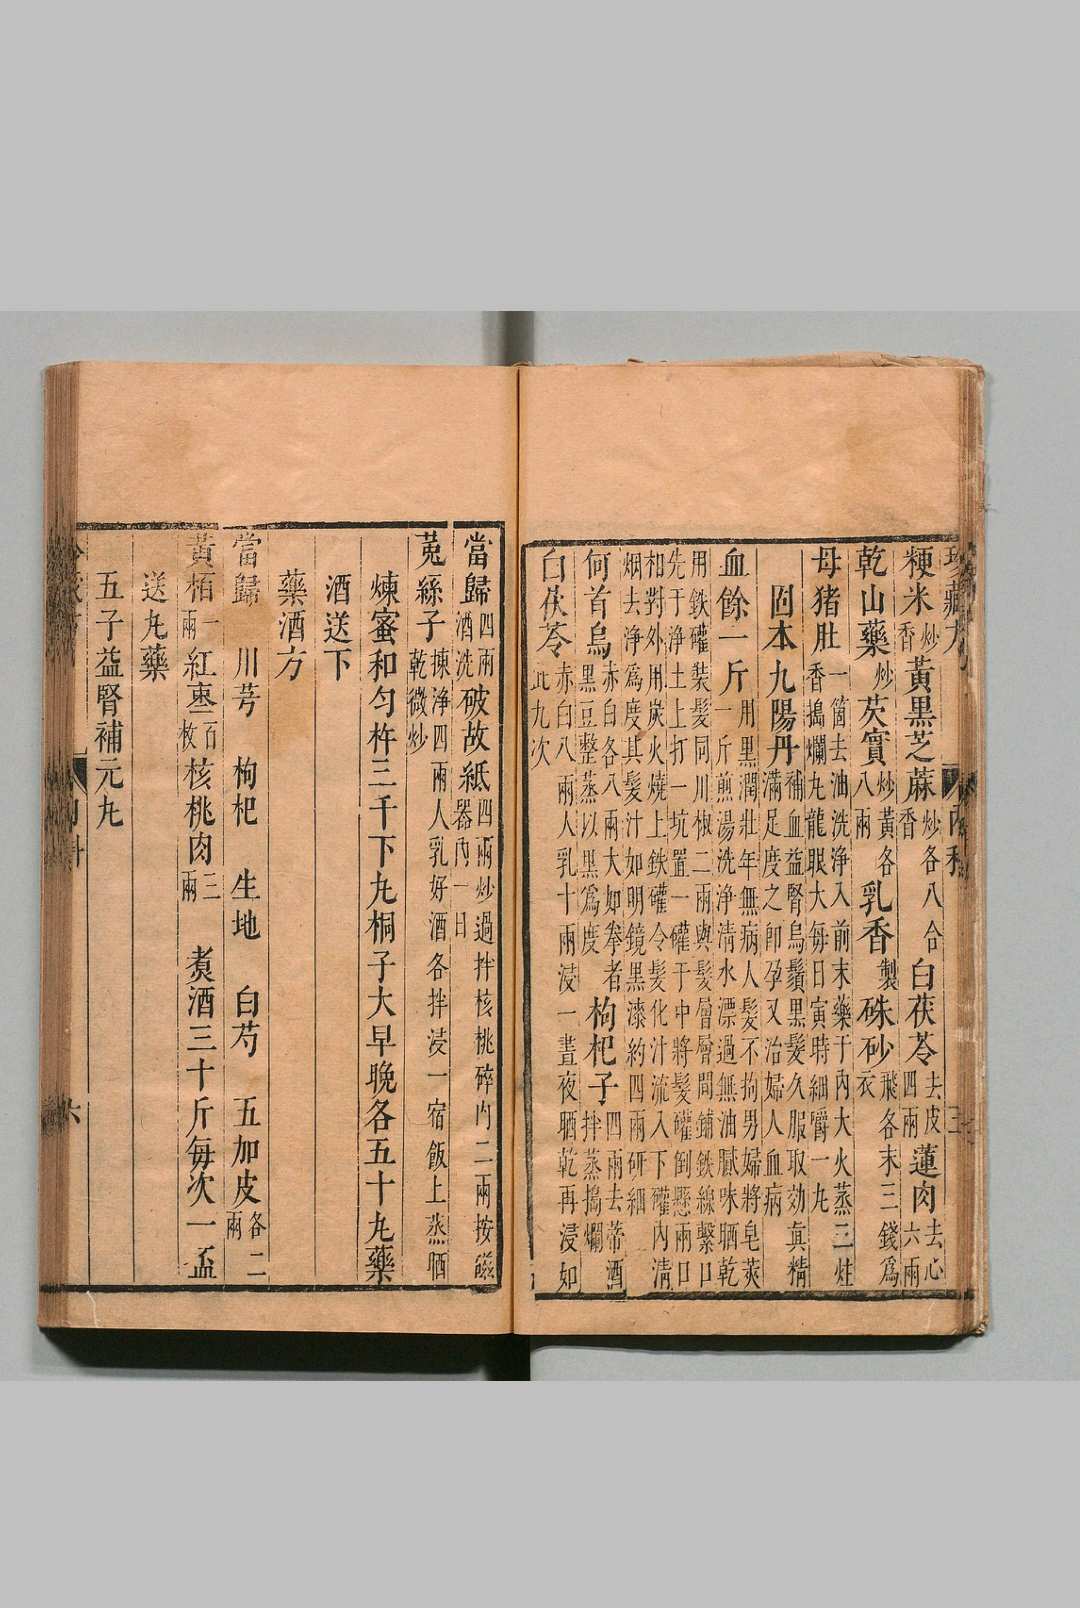 粳米炒香黃黑芝蔴炒香各八合白茯苓去皮四兩蓮肉去心六兩
乾山藥炒芡實炒黃各八兩乳香製硃砂飛各末三錢為衣
母猪肚一箇去油洗淨入前末藥于內大火蒸三炷香搗爛九龍眼大每日寅時細嚼一九
補血益腎烏鬚黑髮久服取効真精滿足度之即孕又治婦人血病
固本九陽丹
血餘一斤用黑潤壯年無病人髮不拘男婦將皂莢一斤煎湯洗淨清水漂過無油膩味晒乾
用鉄礶裝髮同川椒二兩與髮層層間鋪鉄線繫口先于淨土上打一坑置一礶于中將髮礶倒懸兩口
和對外用炭火燒上鉄礶令髮化汁流入下礶內清烟去淨為度其髮汁如明鏡黑漆約四兩研細
何首烏赤白各八兩大如拳者黑豆整蒸以黑為度枸杞子四兩去蒂酒拌蒸搗爛
白茯苓赤白八兩人乳十兩浸一晝夜晒乾再浸如此九次
當歸四兩酒洗破故紙四兩炒過拌核桃碎肉二兩按磁器內一日
菟絲子揀淨四兩人乳好酒各拌浸一宿飯上蒸晒乾微炒
煉蜜和匀杵三千下九桐子大早晚各五十九藥
酒送下
藥酒方
當歸 川芎 枸杞 生地 白芍 五加皮各二兩
黃栢一兩紅棗二百枚核桃肉三兩 煑酒三十斤每次一盃
送九藥
五子益腎補元九
六